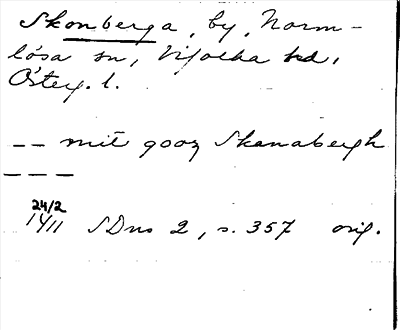 Skonberga, by, Norm-
lösa sn, Vifolka hd,
Österg. l.
-- mit gooz Skanabergh
---
24/2
1411 SDns 2, s. 357 orig.